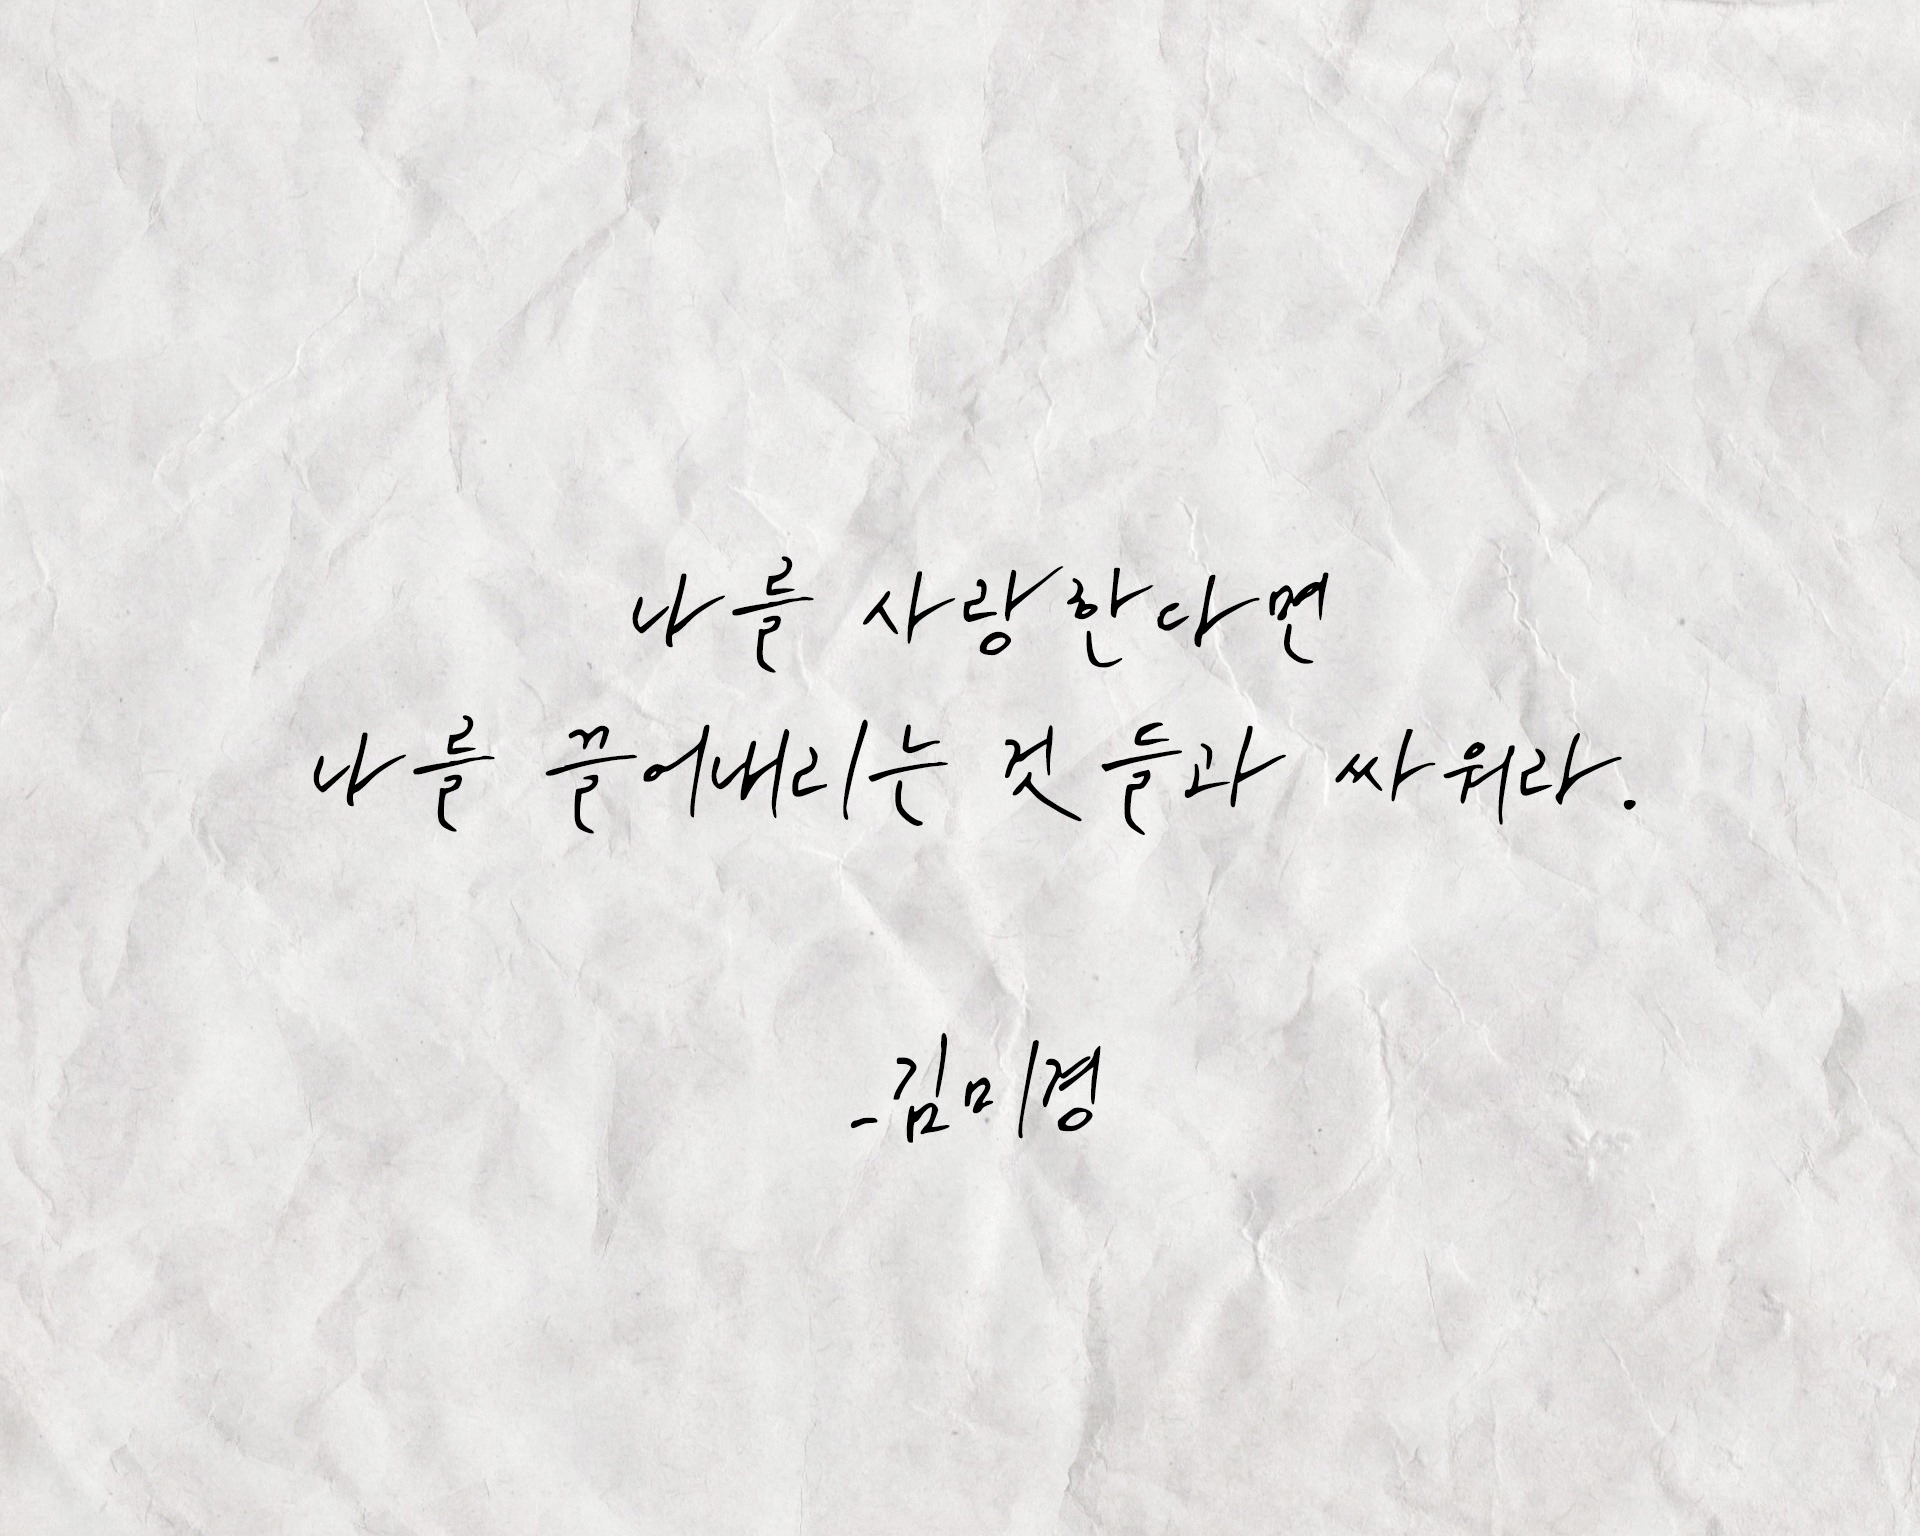 나를 사랑한다면
나를 끌어내리는 것 들과 싸워라.
-김미경